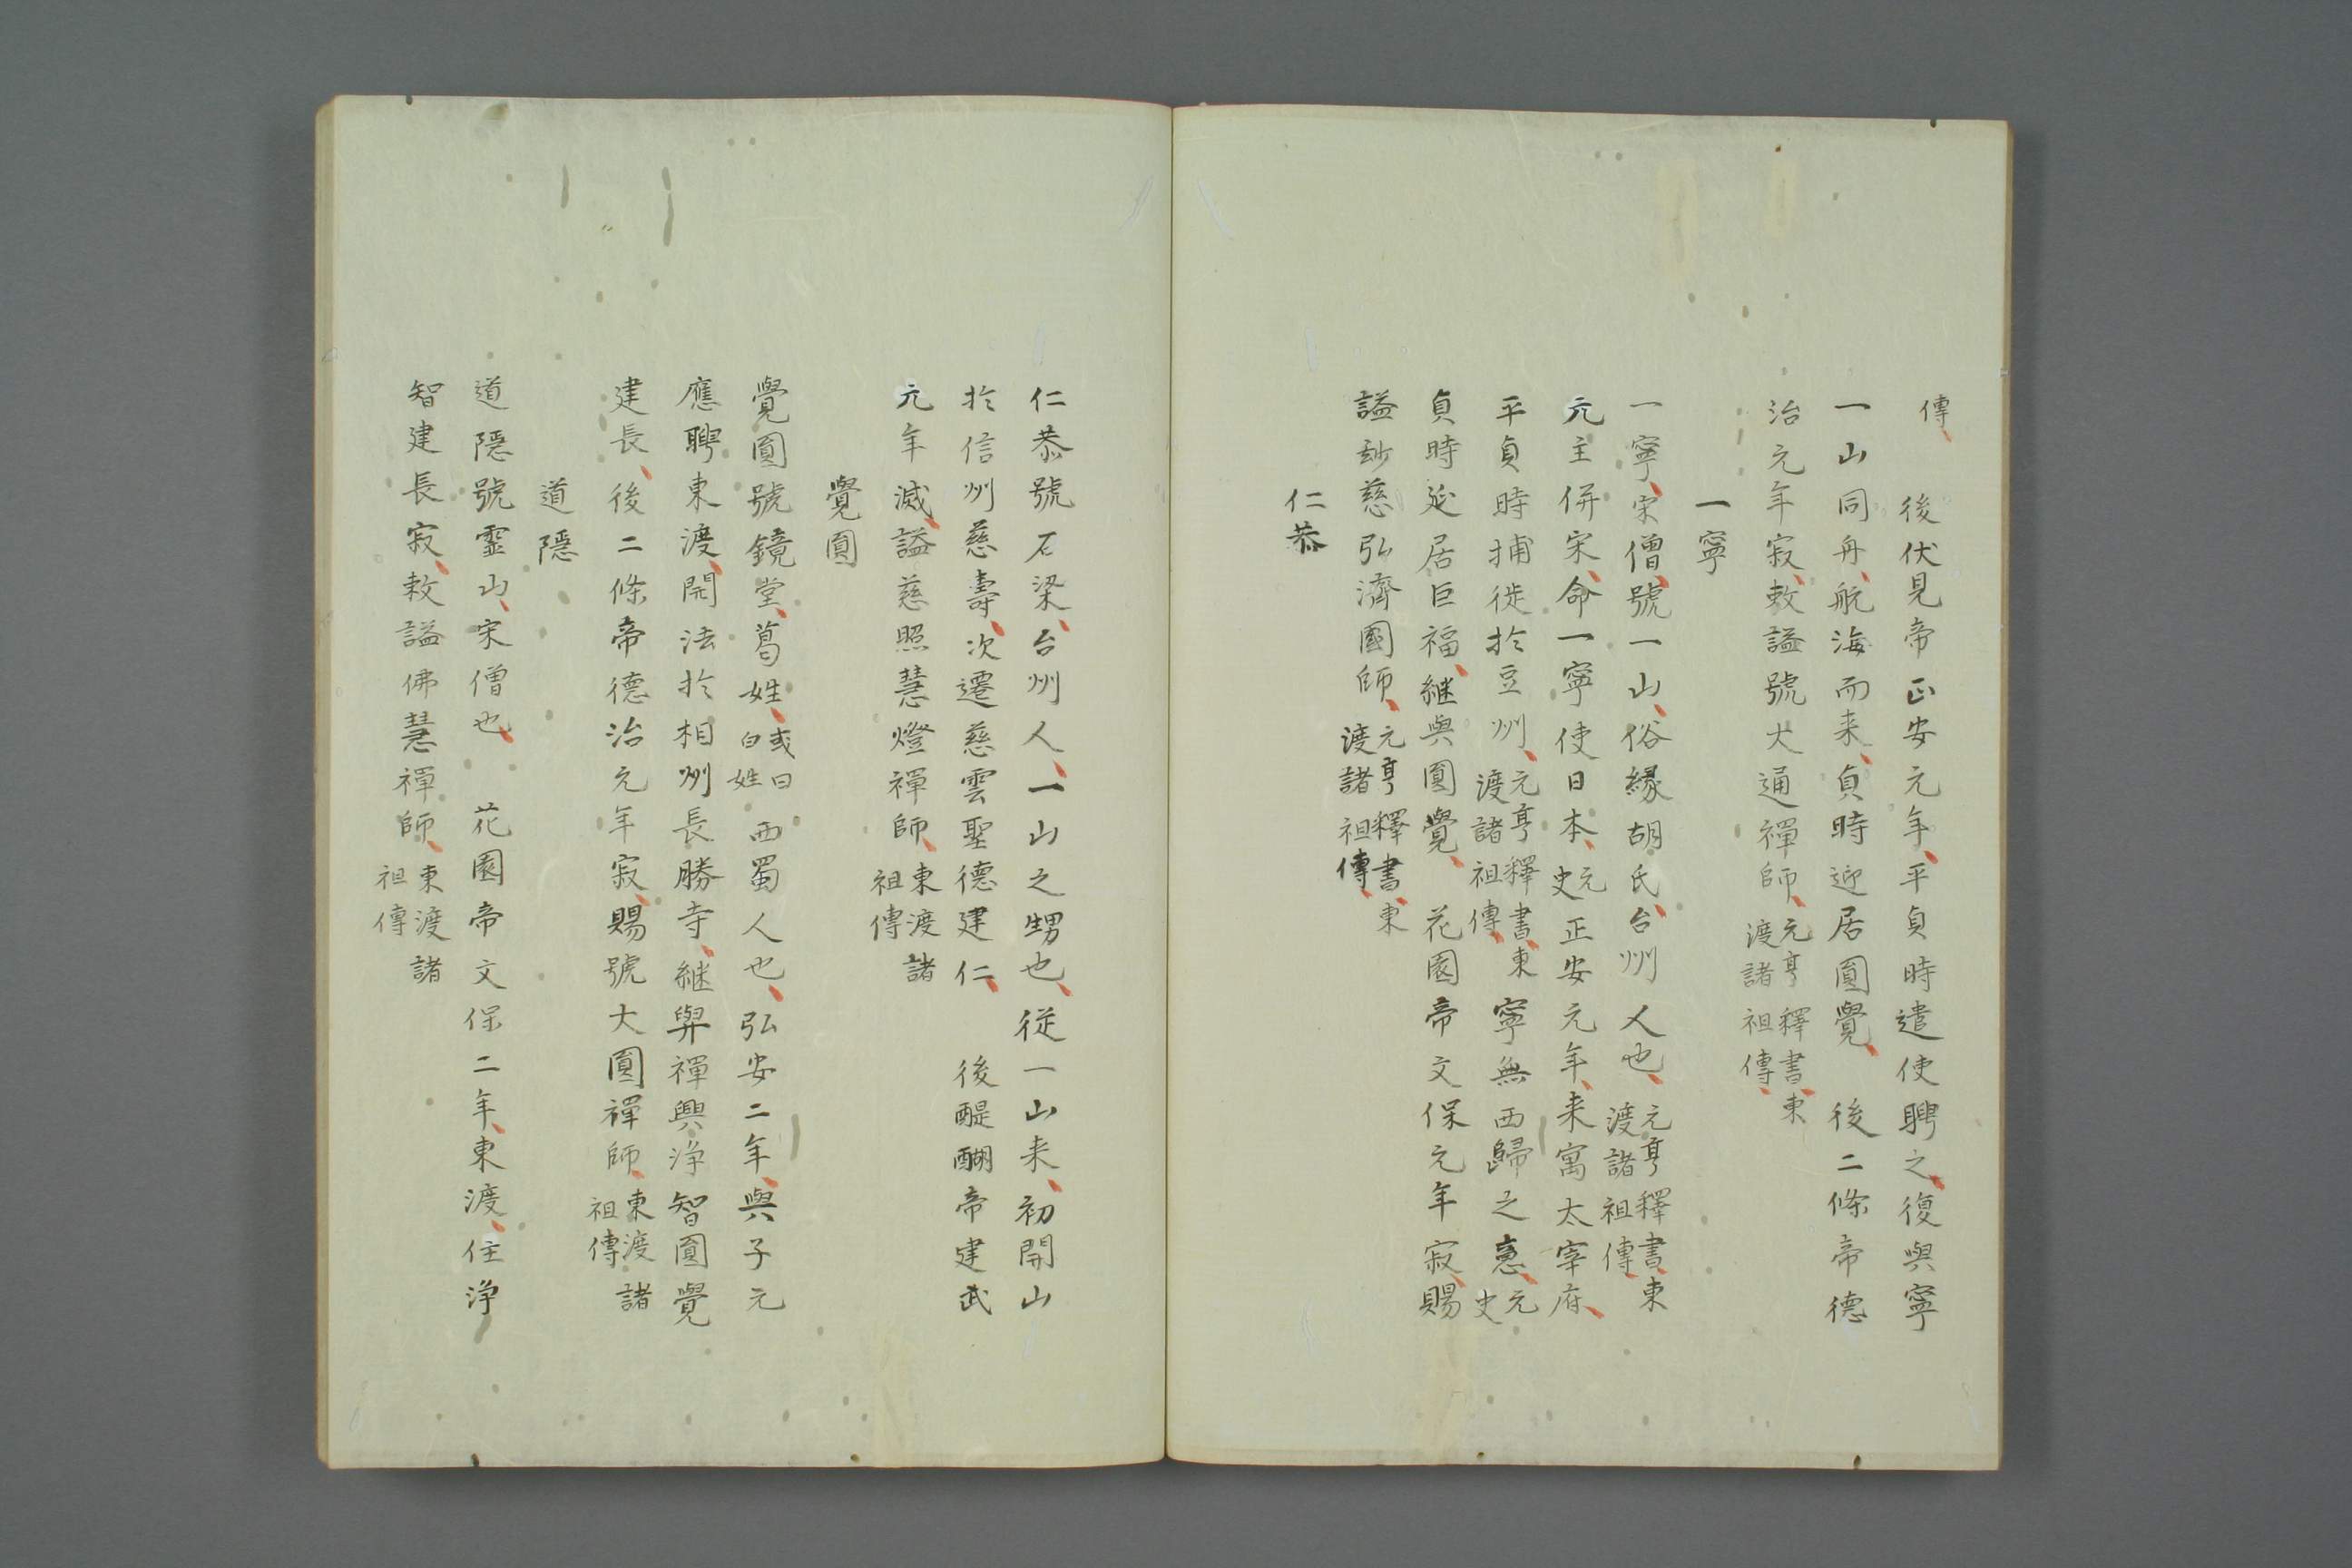 傳、　後伏見帝正安元年、平貞時遣使聘之、復與寧
一山同舟、航海而来、貞時迎居圓覺、　後二條帝德
治元年寂、敕謚號大通禪師、元亨釋書、東渡諸祖傳、
一寧
一寧、宋僧、號一山、俗縁胡氏、台州人也、元亨釋書、東渡諸祖傳、
元主併宋、命一寧使日本、元史正安元年、来寓太宰府、
平貞時捕徙於豆州、元亨釋書、東渡諸祖傳、寧無西歸之意、元史
貞時延居巨福、継與圓覺、　花園帝文保元年寂、賜
謚玅慈弘濟國師、元亨釋書、東渡諸祖傳、
仁恭
仁恭號石梁、台州人、一山之甥也、從一山来、初開山
於信州慈壽、次遷慈雲聖德建仁、　後醍醐帝建武
元年滅、謚慈照慧燈禪師、東渡諸祖傳
覺圓
覺圓號鏡堂、葛姓、或曰白姓西蜀人也、弘安二年、與子元
應聘東渡、開法於相州長勝寺、継舉禪興浄智圓覺
建長、後二條帝德治元年寂、賜號大圓禪師、東渡諸祖傳
道隱
道隱號霊山、宋僧也、　花園帝文保二年、東渡、住浄
智建長寂、敕謚佛慧禪師、東渡諸祖傳